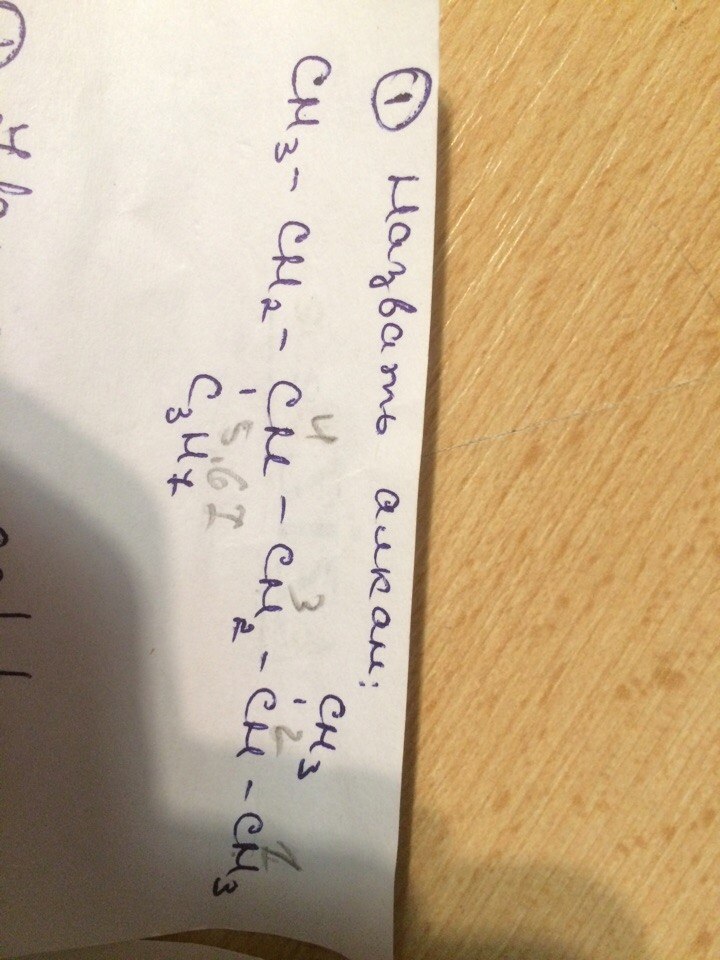 ① Назвать алкан:
CH3
CH3 - CH2 - CH - CH2 - CH - CH3
C3H7
4 3 2 1
5,6 7
①